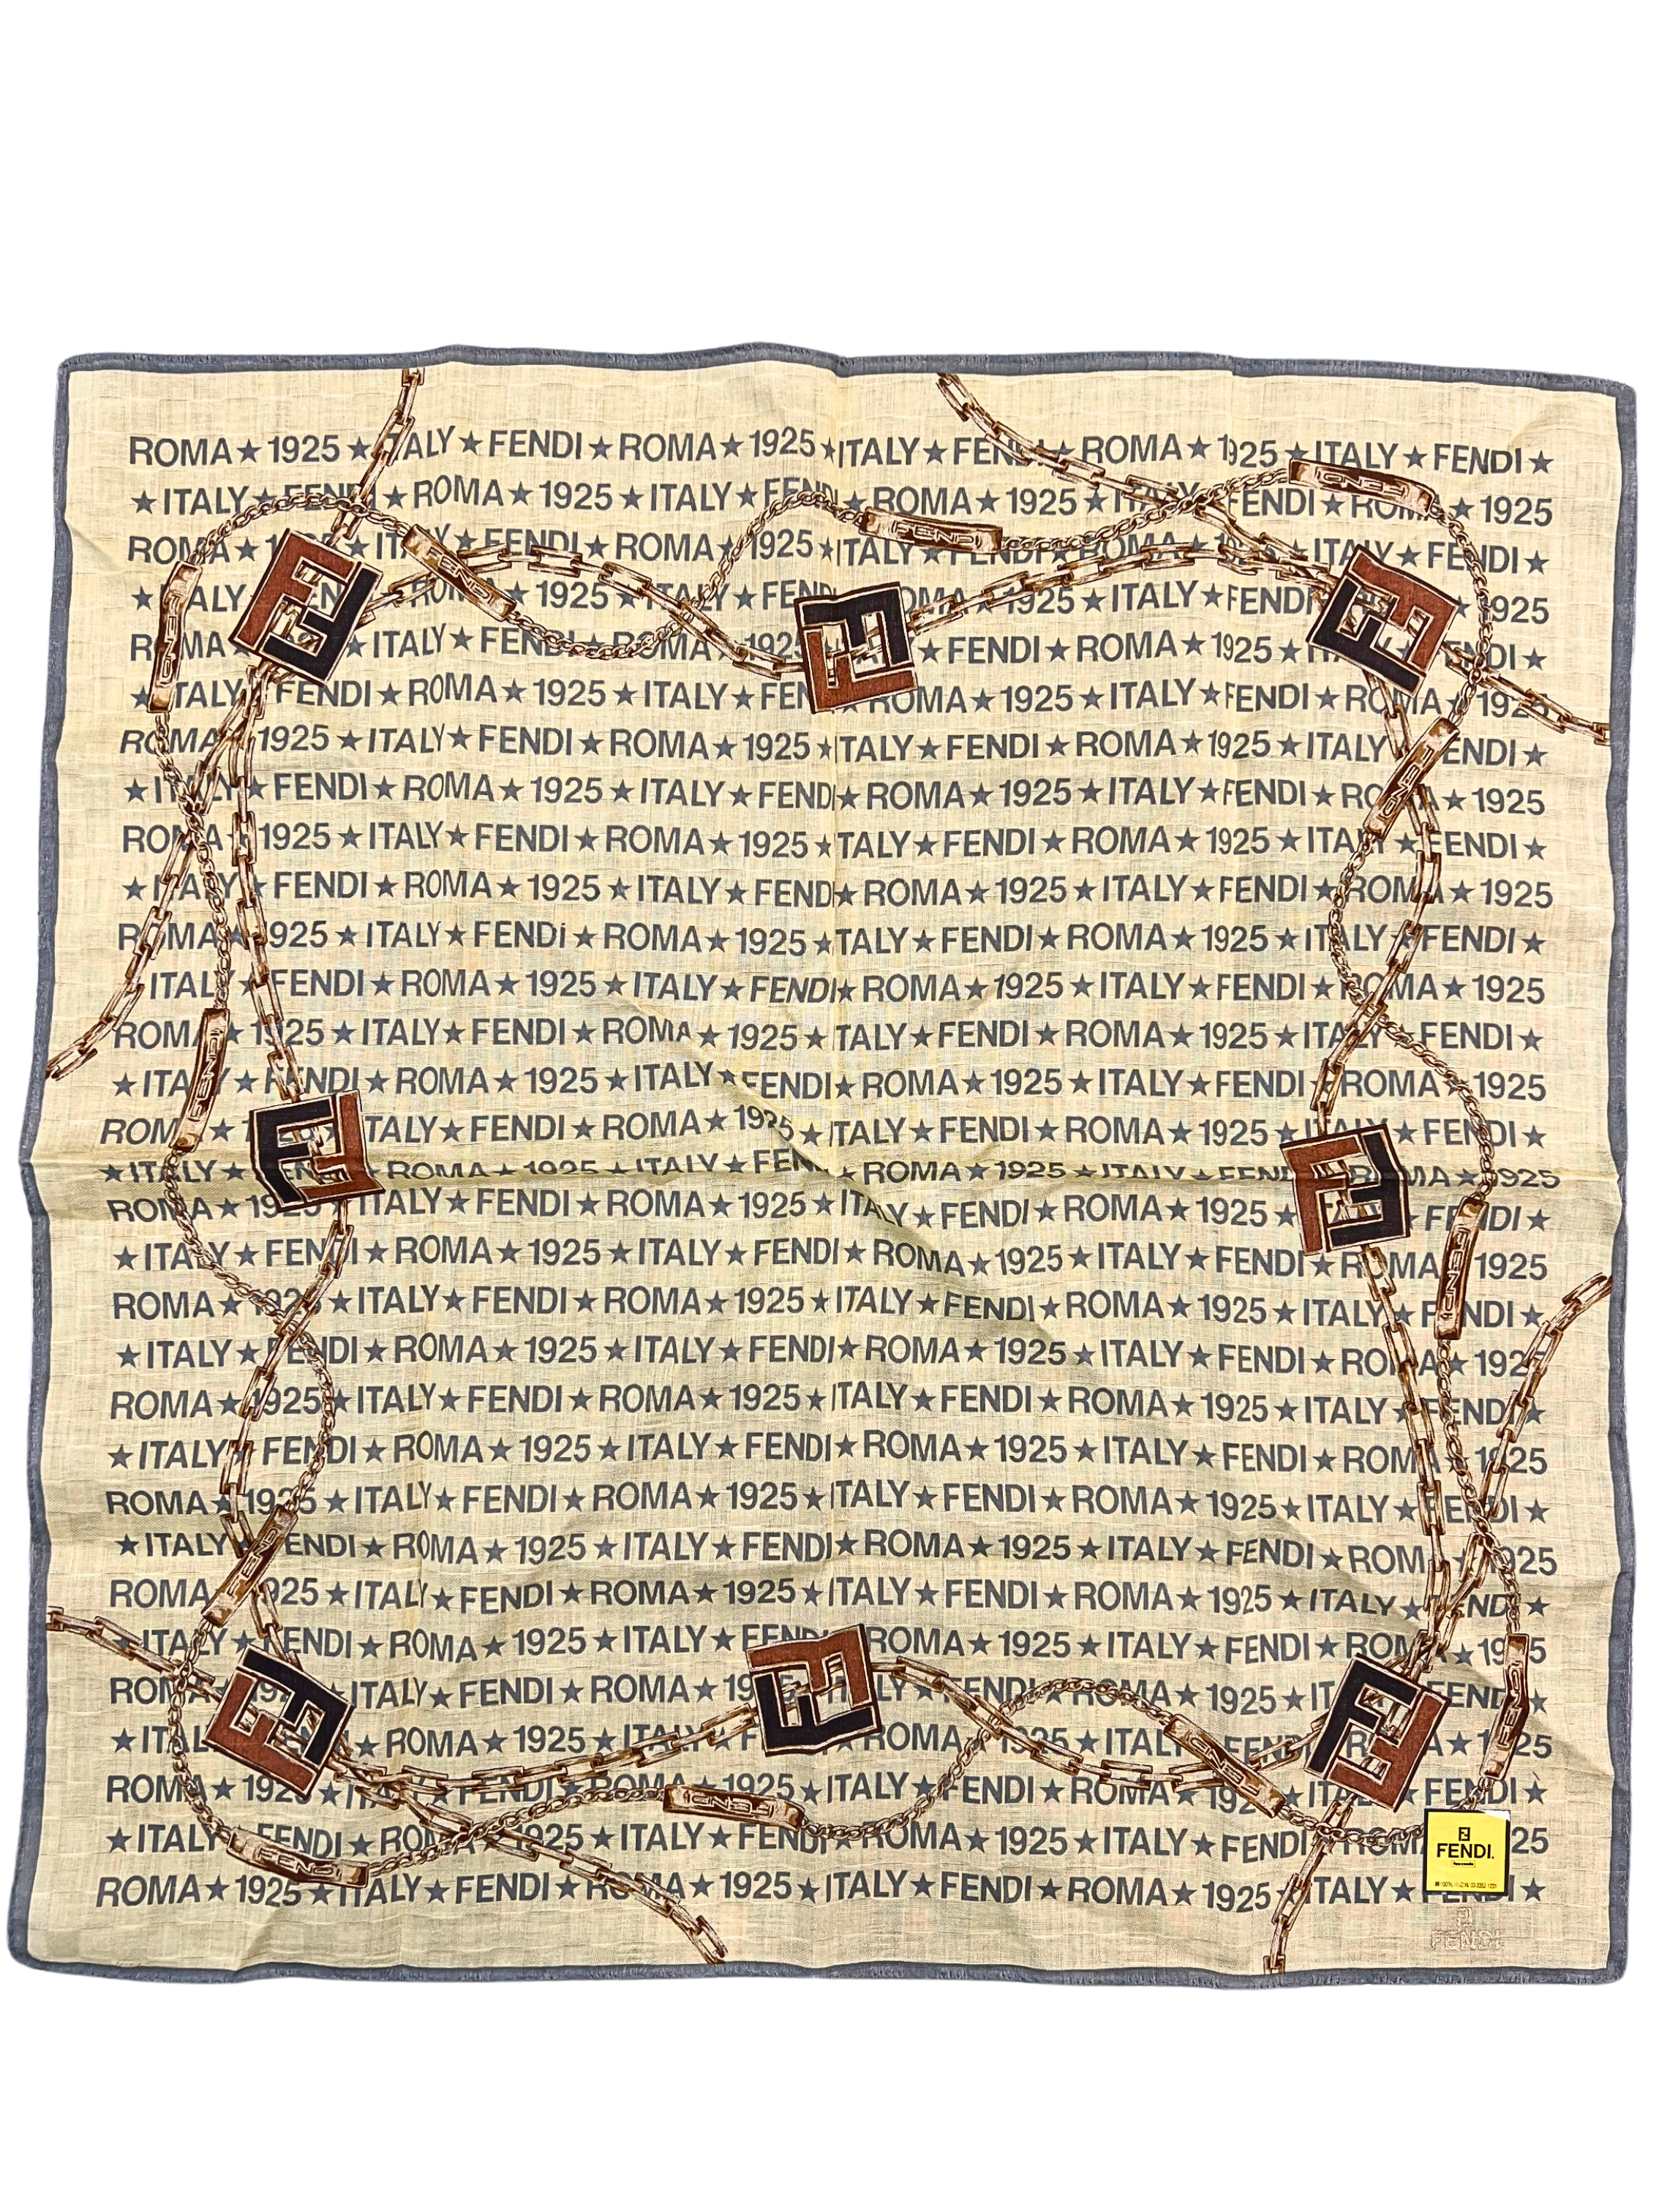 ROMA★1925★ITALY★FENDI★ROMA★1925★ITALY★FENDI★ROMA★1925★ITALY★FENDI★
★ITALY★FENDI★ROMA★1925★ITALY★FENDI★ROMA★1925★ITALY★FENDI★ROMA★1925
ROMA★1925★ITALY★FENDI★ROMA★1925★ITALY★FENDI★ROMA★1925★ITALY★FENDI★
★ITALY★FENDI★ROMA★1925★ITALY★FENDI★ROMA★1925★ITALY★FENDI★ROMA★1925
ROMA★1925★ITALY★FENDI★ROMA★1925★ITALY★FENDI★ROMA★1925★ITALY★FENDI★
★ITALY★FENDI★ROMA★1925★ITALY★FENDI★ROMA★1925★ITALY★FENDI★ROMA★1925
ROMA★1925★ITALY★FENDI★ROMA★1925★ITALY★FENDI★ROMA★1925★ITALY★FENDI★
★ITALY★FENDI★ROMA★1925★ITALY★FENDI★ROMA★1925★ITALY★FENDI★ROMA★1925
ROMA★1925★ITALY★FENDI★ROMA★1925★ITALY★FENDI★ROMA★1925★ITALY★FENDI★
★ITALY★FENDI★ROMA★1925★ITALY★FENDI★ROMA★1925★ITALY★FENDI★ROMA★1925
ROMA★1925★ITALY★FENDI★ROMA★1925★ITALY★FENDI★ROMA★1925★ITALY★FENDI★
ITALY★FENDI★ROMA★1925★ITALY★FENDI★ROMA★1925★ITALY★FENDI★ROMA★1925
ROMA★1925★ITALY★FENDI★ROMA★1925★ITALY★FENDI★ROMA★1925★ITALY★FENDI★
★ITALY★FENDI★ROMA★1925★ITALY★FENDI★ROMA★1925★ITALY★FENDI★ROMA★1925
ROMA★1925★ITALY★FENDI★ROMA★1925★ITALY★FENDI★ROMA★1925★ITALY★FENDI★
★ITALY★FENDI★ROMA★1925★ITALY★FENDI★ROMA★1925★ITALY★FENDI★ROMA★1925
ROMA★1925★ITALY★FENDI★ROMA★1925★ITALY★FENDI★ROMA★1925★ITALY★FENDI★
★ITALY★FENDI★ROMA★1925★ITALY★FENDI★ROMA★1925★ITALY★FENDI★ROMA★1925
ROMA★1925★ITALY★FENDI★ROMA★1925★ITALY★FENDI★ROMA★1925★ITALY★FENDI★
★ITALY★FENDI★ROMA★1925★ITALY★FENDI★ROMA★1925★ITALY★FENDI★ROMA★1925
ROMA★1925★ITALY★FENDI★ROMA★1925★ITALY★FENDI★ROMA★1925★ITALY★FENDI★
★ITALY★FENDI★ROMA★1925★ITALY★FENDI★ROMA★1925★ITALY★FENDI★ROMA★1925
ROMA★1925★ITALY★FENDI★ROMA★1925★ITALY★FENDI★ROMA★1925★ITALY★FENDI★
★ITALY★FENDI★ROMA★1925★ITALY★FENDI★ROMA★1925★ITALY★FENDI★ROMA★1925
ROMA★1925★ITALY★FENDI★ROMA★1925★ITALY★FENDI★ROMA★1925★ITALY★FENDI★
★ITALY★FENDI★ROMA★1925★ITALY★FENDI★ROMA★1925★ITALY★FENDI★ROMA★1925
ROMA★1925★ITALY★FENDI★ROMA★1925★ITALY★FENDI★ROMA★1925★ITALY★FENDI★
★ITALY★FENDI★ROMA★1925★ITALY★FENDI★ROMA★1925★ITALY★FENDI★ROMA★1925
ROMA★1925★ITALY★FENDI★ROMA★1925★ITALY★FENDI★ROMA★1925★ITALY★FENDI★
★ITALY★FENDI★ROMA★1925★ITALY★FENDI★ROMA★1925★ITALY★FENDI★ROMA★1925
ROMA★1925★ITALY★FENDI★ROMA★1925★ITALY★FENDI★ROMA★1925★ITALY★FENDI★
FENDI
FENDI
FENDI
FENDI
FENDI
FENDI
FENDI
FENDI
FENDI
FENDI
FENDI
FENDI
FENDI.
FENDI